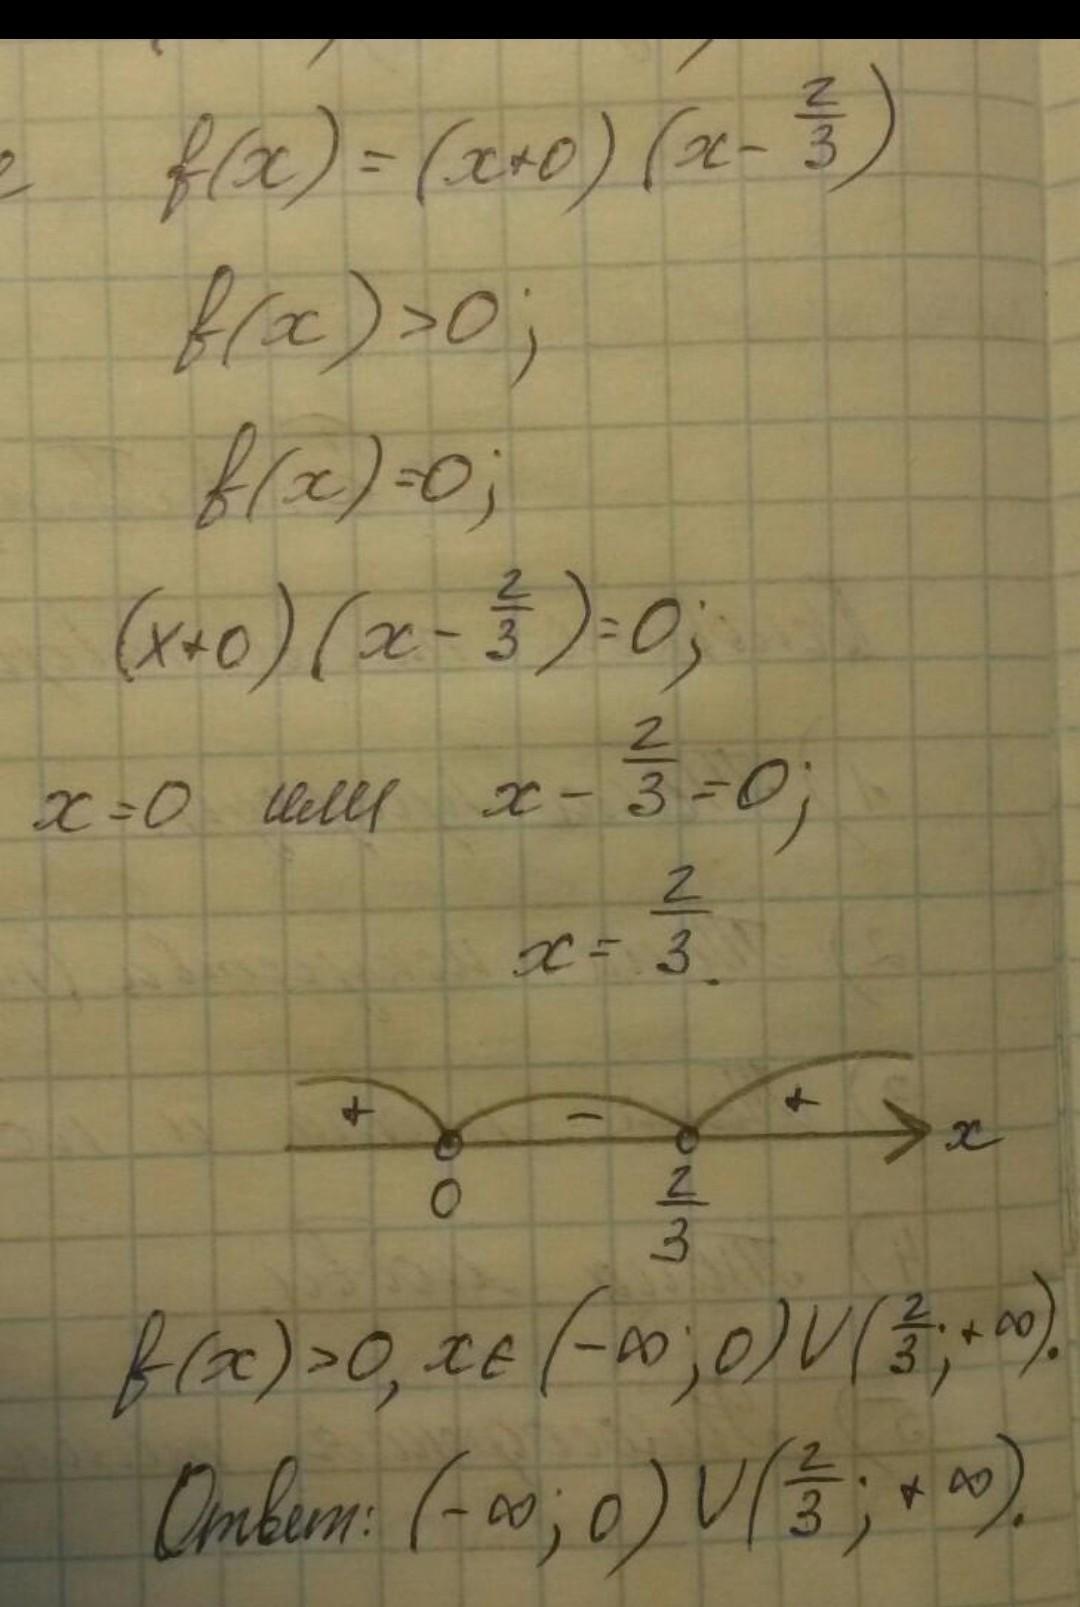 f(x) = (x+0) (x - 2/3)
f(x) > 0;
f(x) = 0;
(x+0) (x - 2/3) = 0;
x = 0 или x - 2/3 = 0;
x = 2/3.
+ - + x
0 2/3
f(x) > 0, x ∈ (-∞; 0) ∪ (2/3; +∞).
Ответ: (-∞; 0) ∪ (2/3; +∞).